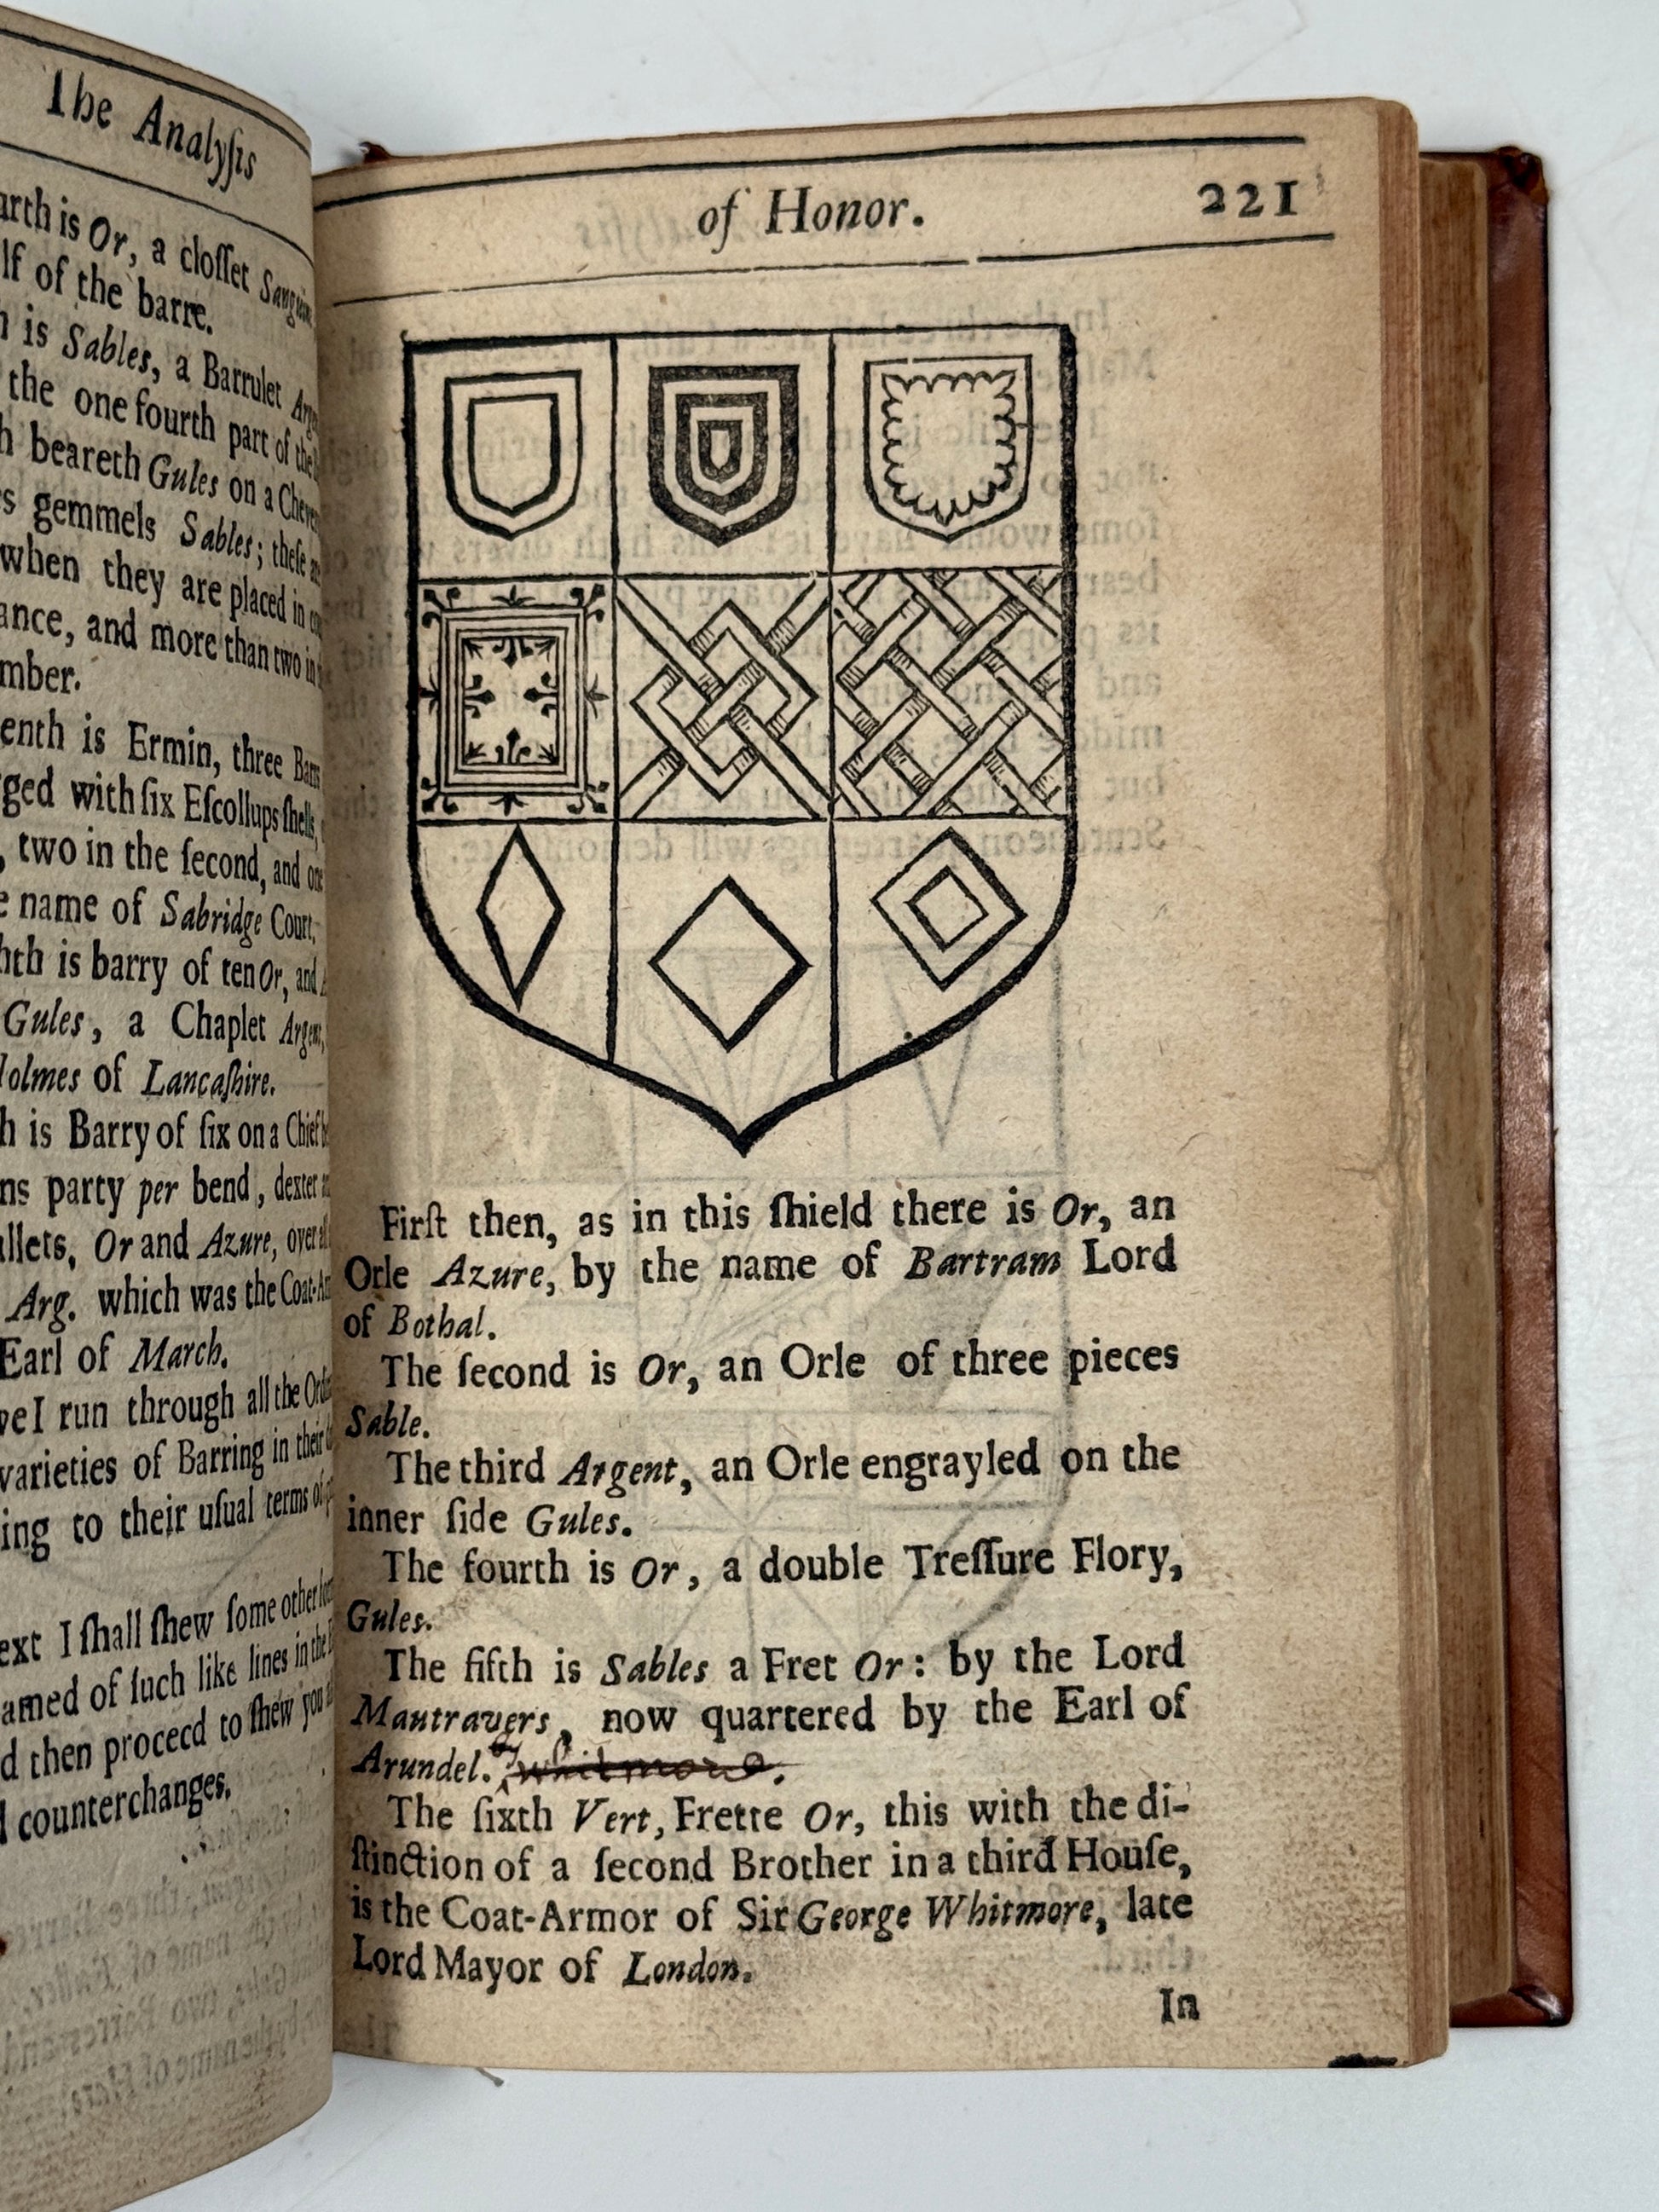 The Analyſis
is Or, a cloſſet
of the barre.
is Sables, a Barrulet
the one fourth part of the
beareth Gules on a
gemmels Sables; theſe
when they are placed in
and more than two in
enth is Ermin, three
ged with ſix Eſcollups ſhells,
two in the ſecond, and
name of Sabridge Court,
is barry of ten Or, and
Gules, a Chaplet
of Lancaſhire.
is Barry of ſix on a Chief
party per bend, dexter
Or and Azure, over
Arg. which was the
Earl of March.
I run through all the
varieties of Barring in their
ing to their uſual terms of
I ſhall ſhew ſome other
of ſuch like lines in the
then proceed to ſhew you
counterchanges.
of Honor. 221
Firſt then, as in this ſhield there is Or, an
Orle Azure, by the name of Bartram Lord
of Bothal.
The ſecond is Or, an Orle of three pieces
Sable.
The third Argent, an Orle engrayled on the
inner ſide Gules.
The fourth is Or, a double Treſſure Flory,
Gules.
The fifth is Sables a Fret Or: by the Lord
Mantravers, now quartered by the Earl of
Arundel. whitmore.
The ſixth Vert, Frette Or, this with the di-
ſtinction of a ſecond Brother in a third Houſe,
is the Coat-Armor of Sir George Whitmore, late
Lord Mayor of London.
In